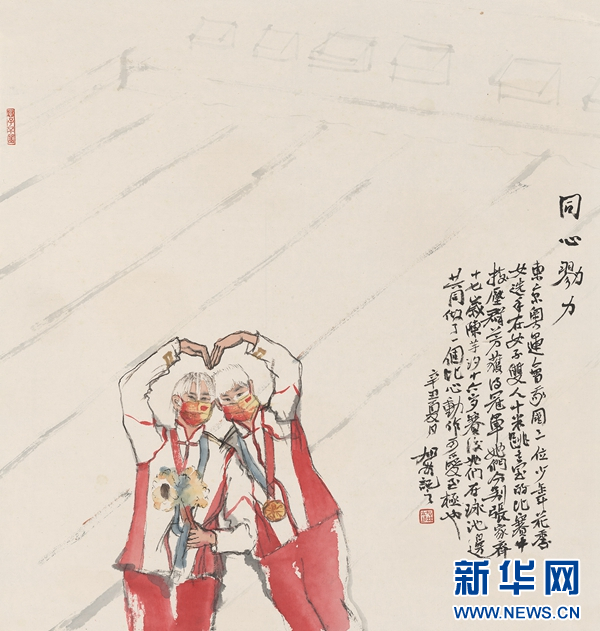 同心勠力
東京奥運會我國二位少年花季
女选手在女子雙人十米跳臺的比賽中
技壓群芳獲得冠軍她們分别張家齊
十七歲陳芋汐十六岁賽後她们在球池邊
共同做了一個比心動作可愛至極也
辛丑夏日
記之
新华网
WWW.NEWS.CN